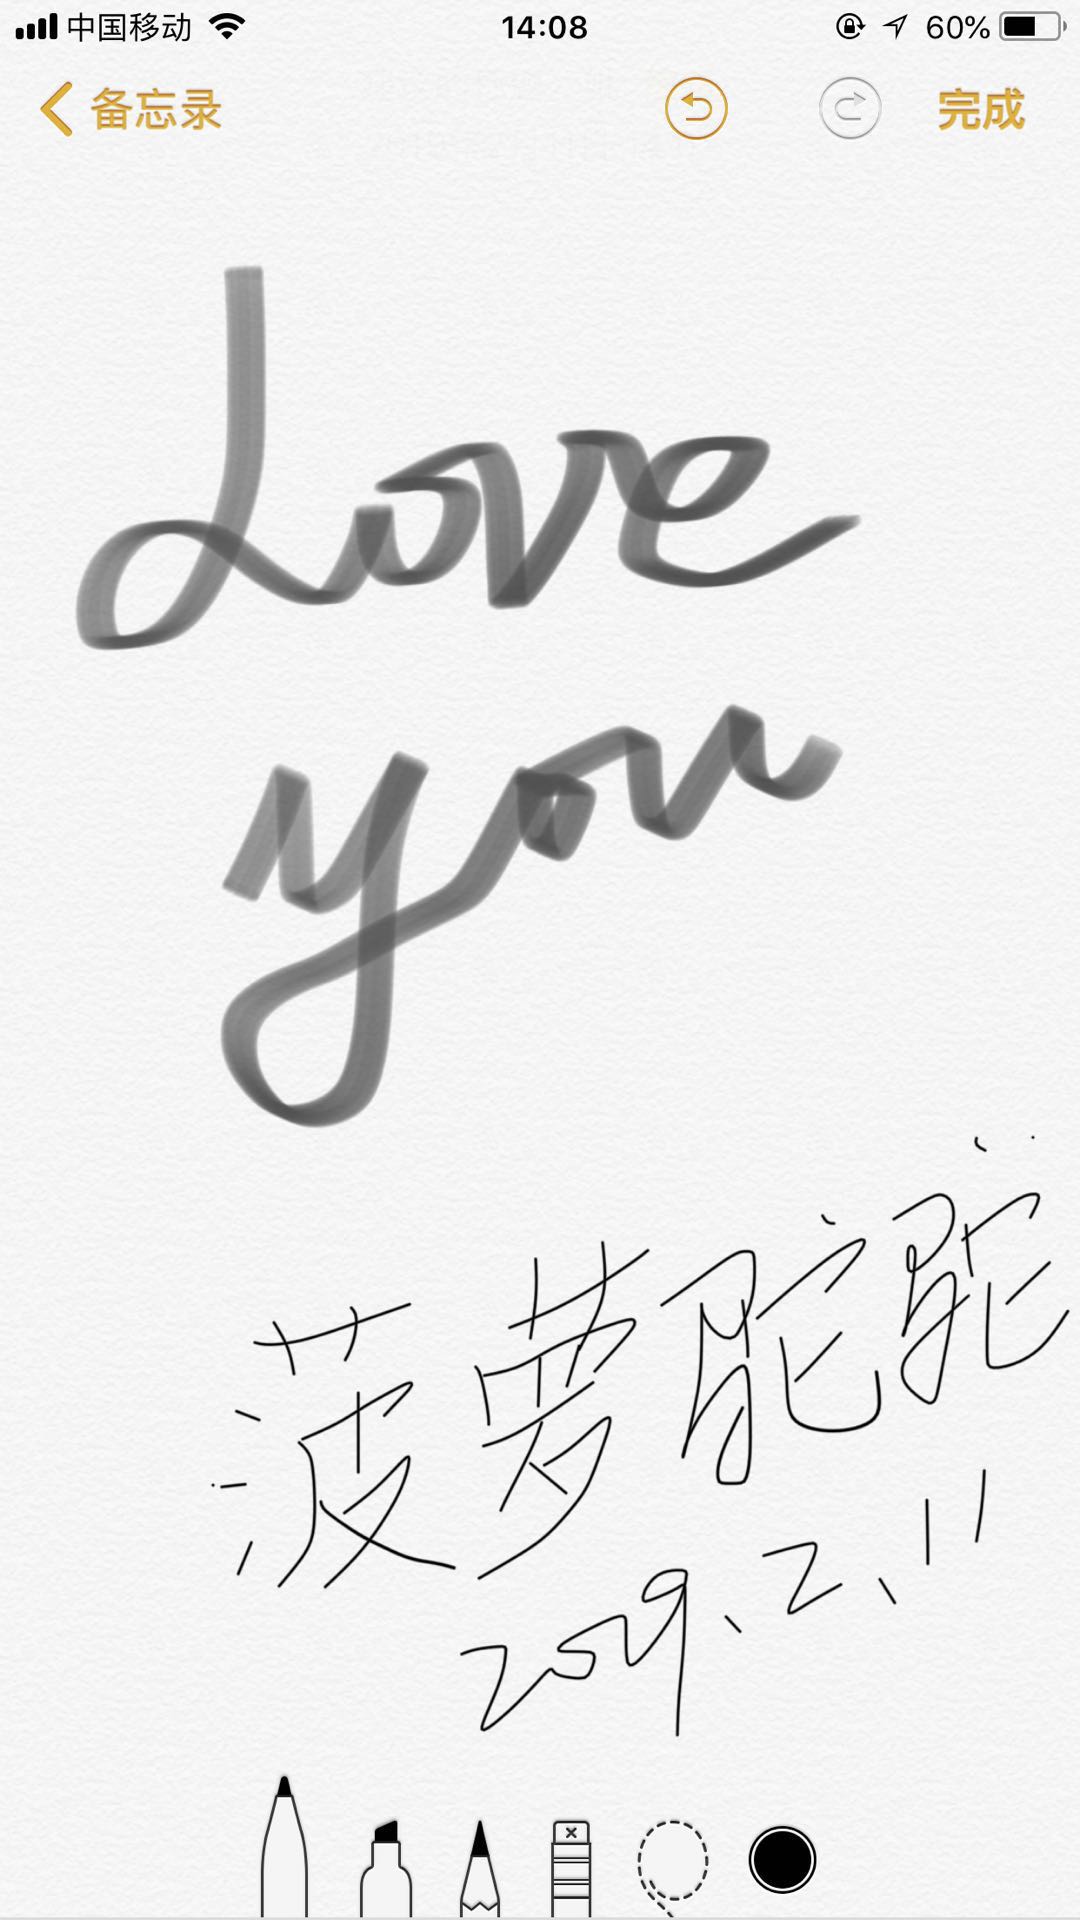 中国移动 14:08 60%
备忘录 完成
Love
you
菠萝陀陀
2019.2.11